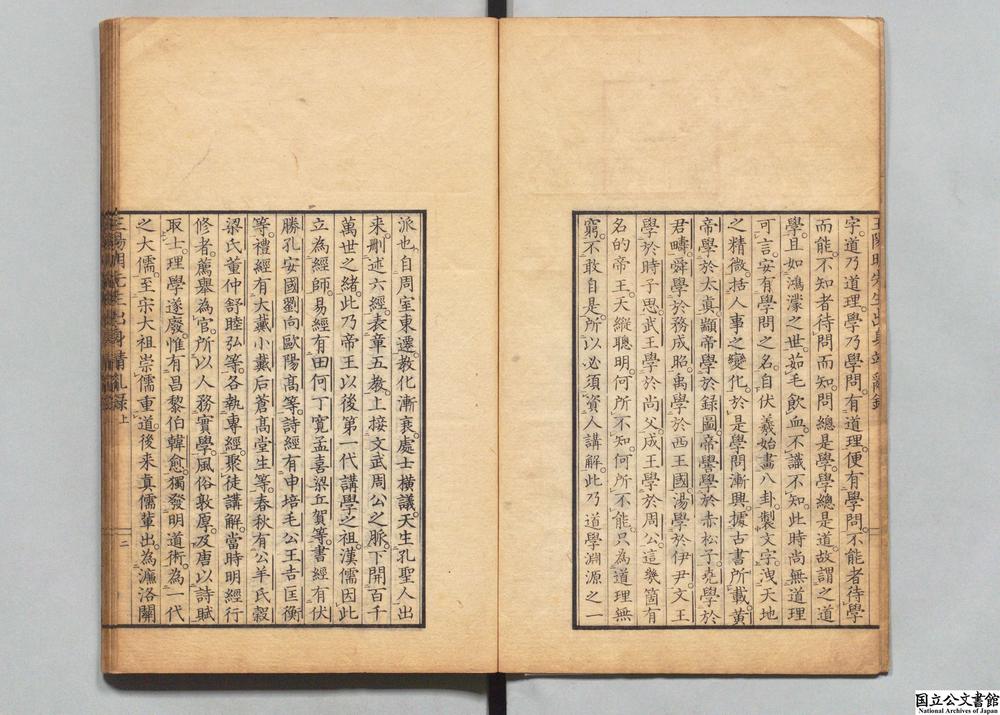 王陽明先生出身靖亂錄
字。道乃道理。學乃學問。有道理。便有學問。不能者待學
而能。不知者待問而知。問總是學。學總是道。故謂之道
學。且如鴻濛之世。茹毛飲血。不識不知。此時尚無道理
可言。安有學問之名。自伏羲始畫八卦。製文字。洩天地
之精微。括人事之變化。於是學問漸興。據古書所載。黃
帝學於太真。顓帝學於錄圖。帝嚳學於赤松子。堯學於
君疇。舜學於務成昭。禹學於西王國。湯學於伊尹。文王
學於時子思。武王學於尚父。成王學於周公。這幾箇有
名的帝王。天縱聰明。何所不知。何所不能。只為道理無
窮。不敢自是。所以必須資人講解。此乃道學淵源之一
派也。自周室東遷。教化漸衰。處士橫議。天生孔聖人出
來。刪述六經。表章五教。上接文武周公之脈。下開百千
萬世之緒。此乃帝王以後第一代講學之祖。漢儒因此
立為經師。易經有田何丁寬孟喜梁丘賀等。書經有伏
勝孔安國劉向歐陽高等。詩經有申培毛公王吉匡衡
等。禮經有大戴小戴后蒼高堂生等。春秋有公羊氏穀
梁氏董仲舒睦弘等。各執專經。聚徒講解。當時明經行
修者。薦舉為官。所以人務實學。風俗敦厚。及唐以詩賦
取士。理學遂廢。惟有昌黎伯韓愈。獨發明道術。為一代
之大儒。至宋太祖崇儒重道。後來真儒輩出。為濂洛關
王陽明先生出身靖亂錄 上
二
国立公文書館
National Archives of Japan